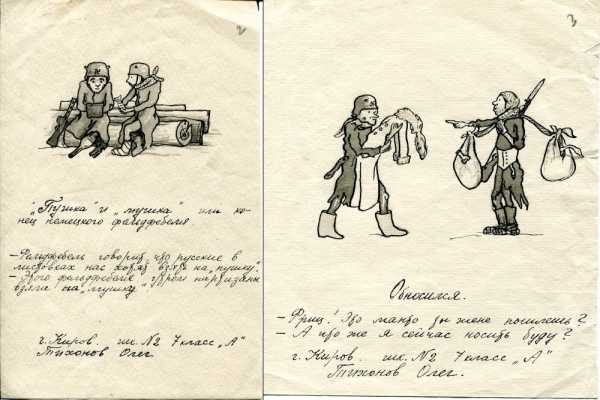 2
„Пушка" и „мушка" или ко-
нец немецкого фельдфебеля
- Фельдфебель говорил, что русские в
листовках нас хотят взять на „пушку".
- Этого фельдфебеля утром партизаны
взяли на „мушку".
г. Киров. шк. №2 7 класс „А"
Тихонов Олег
3
Обносился.
- Фриц! Это манто ты жене пошлешь?
- А что же я сейчас носить буду?
г. Киров. шк. №2 7 класс „А"
Тихонов Олег.